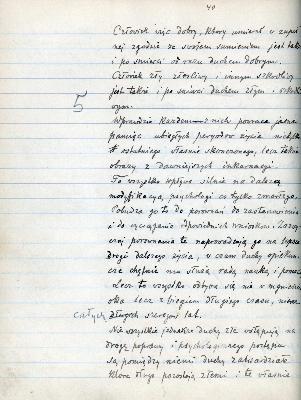 40
Człowiek więc dobry, który umierał w zupeł
nej zgodzie ze swojem sumieniem jest także
i po śmierci od razu duchem dobrym.
Człowiek zły złośliwy i innym szkodliwy
jest także i po śmierci duchem złym i szkodli
wym.
5
Wprawdzie każdemu z nich powraca jasna
pamięć ubiegłych peryodów życia nietylko
ostatniego właśnie skończonego, lecz także
obrazy z dawniejszych inkarnacji.
To wszystko wpływa silnie na dalszą
modyfikacyą psychologi co tylko zmarłego.
Pobudza go to do porównań do zastanowienia
i do czerpania odpowiednich wniosków.
poznania te naprowadzają go na lepsze
drogi dalszego życia, w czem duchy opiekuń.
cze chętnie mu służą radą, nauką, i pomocą
Lecz to wszystko odbywa się nie w mgnieniu
oka lecz z biegiem długiego czasu, nieraz
całych długich szeregów lat.
Nie wszystkie jednakże duchy złe wstępują na
drogę poprawy i psychologicznego postępu
są pomiędzy niemi duchy zatwardziałe
które długo pozostają złemi i te właśnie